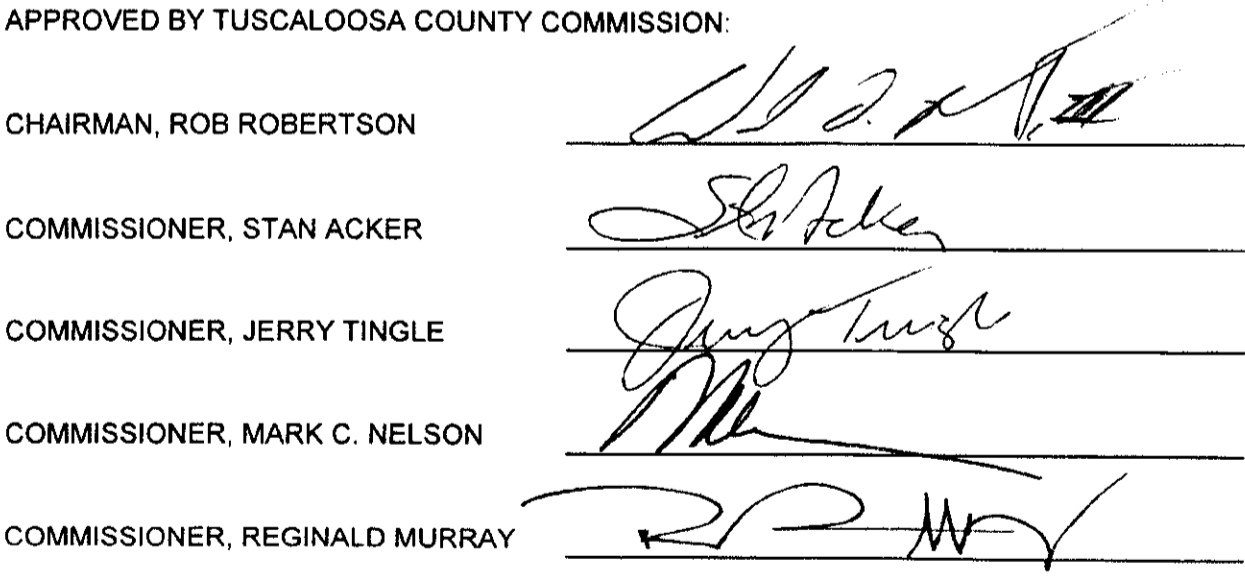 APPROVED BY TUSCALOOSA COUNTY COMMISSION:
CHAIRMAN, ROB ROBERTSON
COMMISSIONER, STAN ACKER Stan Acker
COMMISSIONER, JERRY TINGLE Jerry Tingle
COMMISSIONER, MARK C. NELSON
COMMISSIONER, REGINALD MURRAY